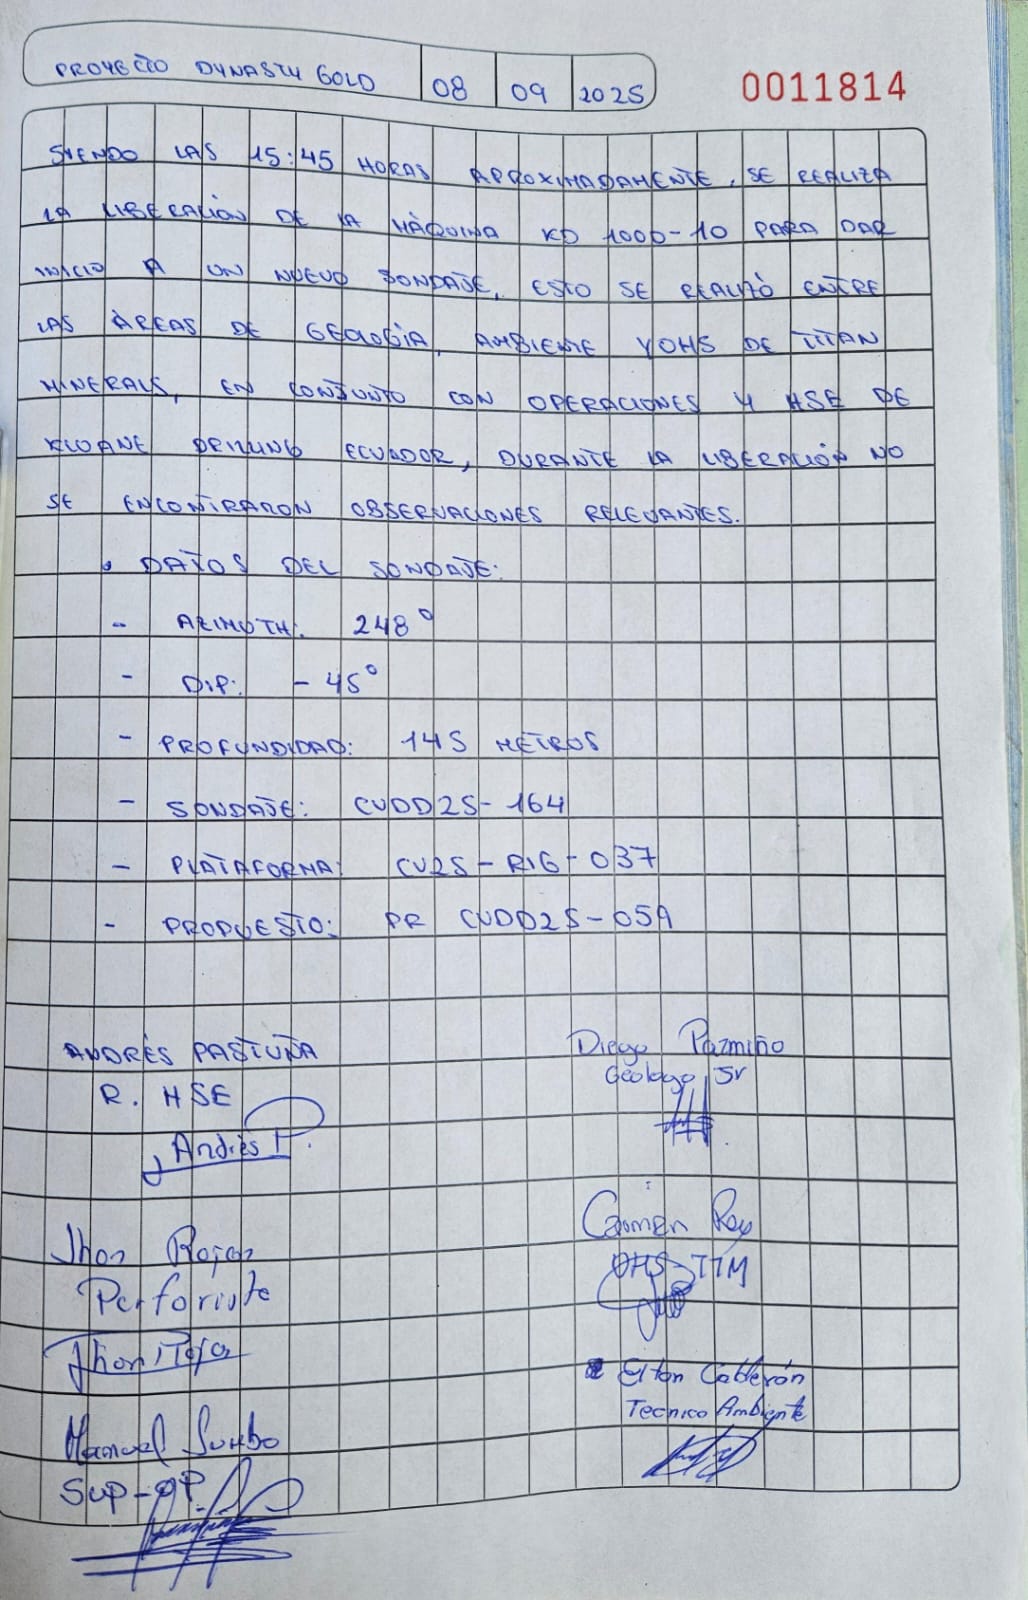 PROYECTO DYNASTY GOLD 08 09 2025
0011814
SIENDO LAS 15:45 HORAS APROXIMADAMENTE, SE REALIZA
LA LIBERACIÓN DE LA MÁQUINA KD 1000-10 PARA DAR
INICIO A UN NUEVO SONDAJE, ESTO SE REALIZÓ ENTRE
LAS ÁREAS DE GEOLOGÍA, AMBIENTE Y OHS DE TITAN
MINERALS, EN CONJUNTO CON OPERACIONES Y HSE DE
KLUANE DRILLING ECUADOR, DURANTE LA LIBERACIÓN NO
SE ENCONTRARON OBSERVACIONES RELEVANTES.
• DATOS DEL SONDAJE:
- AZIMUTH: 248°
- DIP: -45°
- PROFUNDIDAD: 145 METROS
- SONDAJE: CUDD25-164
- PLATAFORMA: CU25-RIG-037
- PROPUESTO: PR CUDD25-059
ANDRÉS PASTUÑA
R. HSE
Andrés P.
Diego Pazmiño
Geologo Sr
Jhon Rojas
Perforista
Jhon Roja
Carmen Rey
OHS-TTM
Manuel
Sup-OP.
Elton Calderón
Tecnico Ambiente